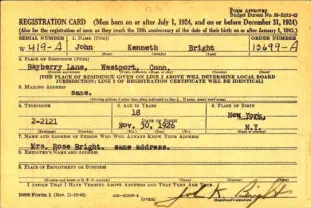 FORM APPROVED
REGISTRATION CARD—(Men born on or after July 1, 1924, and on or before December 31, 1924)
(Also for the registration of men as they reach the 18th anniversary of the date of their birth on or after January 1, 1943.)
SERIAL NUMBER 1. NAME (Print) ORDER NUMBER
W 419-A John Kenneth Bright 13699-A
2. PLACE OF RESIDENCE (Print)
Bayberry Lane, Westport, Conn.
[THE PLACE OF RESIDENCE GIVEN ON LINE 2 ABOVE WILL DETERMINE LOCAL BOARD
JURISDICTION; LINE 2 OF REGISTRATION CERTIFICATE WILL BE IDENTICAL]
3. MAILING ADDRESS
same.
4. TELEPHONE 5. AGE IN YEARS 6. PLACE OF BIRTH
18 New York,
DATE OF BIRTH
2-2121 Nov. 30, 1926 N.Y.
7. NAME AND ADDRESS OF PERSON WHO WILL ALWAYS KNOW YOUR ADDRESS
Mrs. Rose Bright. same address.
8. EMPLOYER'S NAME AND ADDRESS
9. PLACE OF EMPLOYMENT OR BUSINESS
I AFFIRM THAT I HAVE VERIFIED ABOVE ANSWERS AND THAT THEY ARE TRUE.
DSS Form 1 John K. Bright